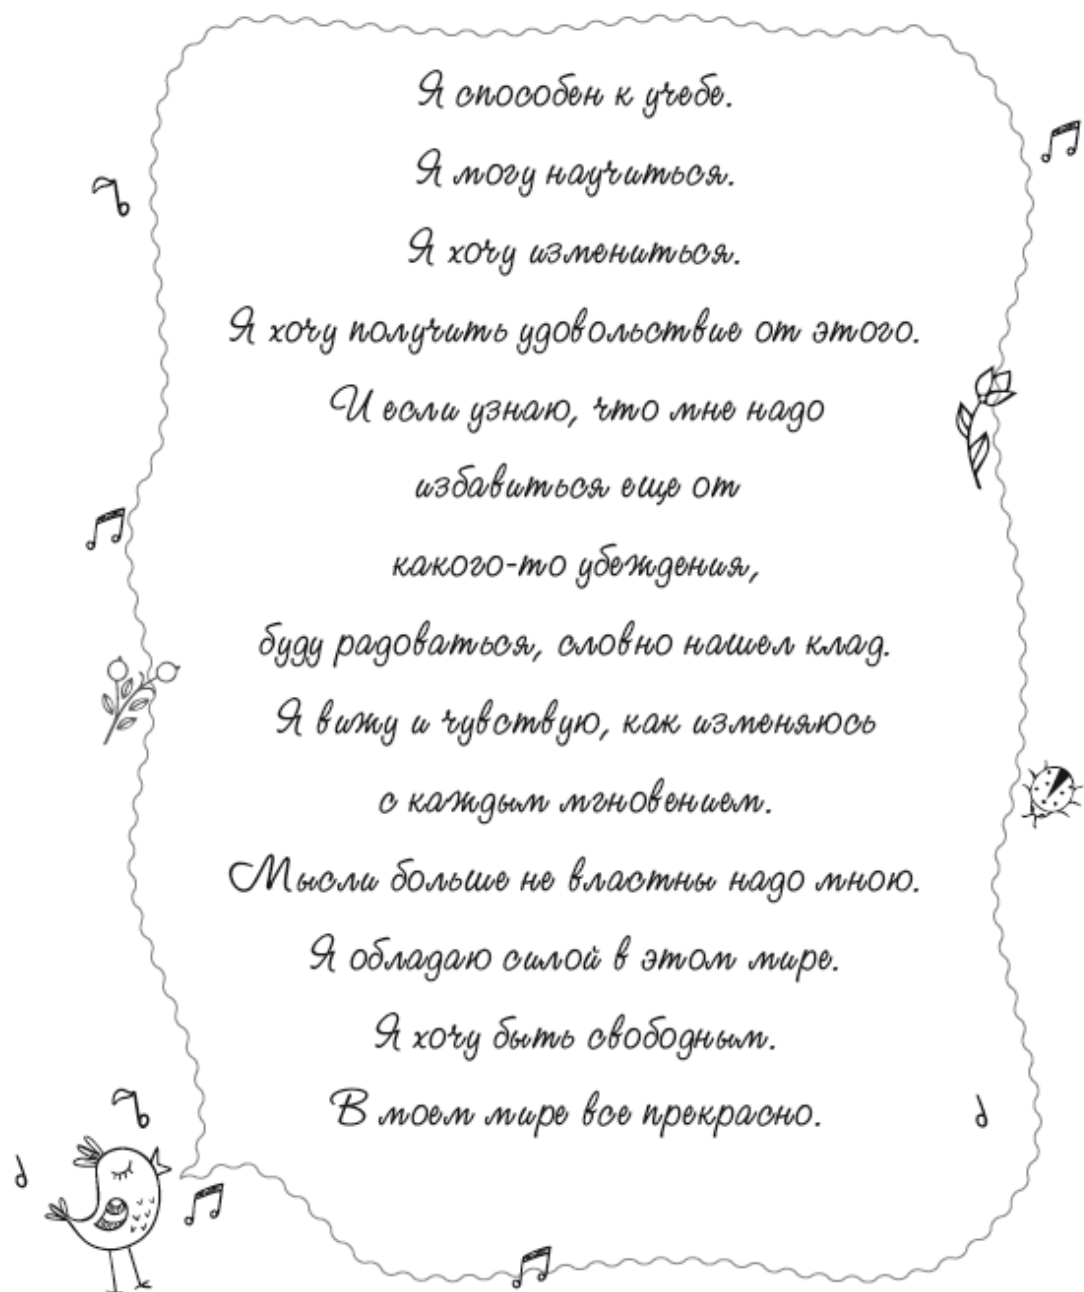 Я способен к учебе.
Я могу научиться.
Я хочу измениться.
Я хочу получить удовольствие от этого.
И если узнаю, что мне надо
избавиться еще от
какого-то убеждения,
буду радоваться, словно нашел клад.
Я вижу и чувствую, как изменяюсь
с каждым мгновением.
Мысли больше не властны надо мною.
Я обладаю силой в этом мире.
Я хочу быть свободным.
В моем мире все прекрасно.